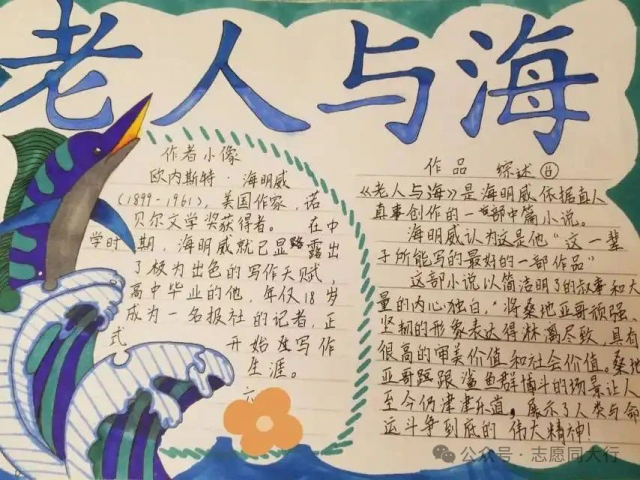 老人与海
作者小像
欧内斯特·海明威
(1899-1961), 美国作家, 诺
贝尔文学奖获得者。 在中
学时期, 海明威就已显露出
了极为出色的写作天赋,
高中毕业的他, 年仅18岁
成为一名报社的记者, 正
式开始写作
生涯。
作品 综述
《老人与海》是海明威依据真人
真事创作的一部中篇小说。
海明威认为这是他“这一辈
子所能写的最好的一部作品”
这部小说以简洁明了的叙事和大
量的内心独白,“将桑地亚哥顽强、
坚韧的形象表达得淋漓尽致, 具有
很高的审美价值和社会价值。桑地
亚哥跟鲨鱼群搏斗的场景让人
至今仍津津乐道, 展示了人类与命
运斗争到底的伟大精神!
公众号·志愿同大行